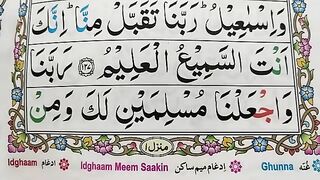 وَاِسۡمٰعِيۡلُ ؕ رَبَّنَا تَقَبَّلۡ مِنَّا ؕ اِنَّكَ
اَنۡتَ السَّمِيۡعُ الۡعَلِيۡمُ ﴿۱۲۷﴾ رَبَّنَا
وَاجۡعَلۡنَا مُسۡلِمَيۡنِ لَكَ وَمِنۡ
منزل ۱
Idghaam ادغام Idghaam Meem Saakin ادغام میم ساکن Ghunna غنّه